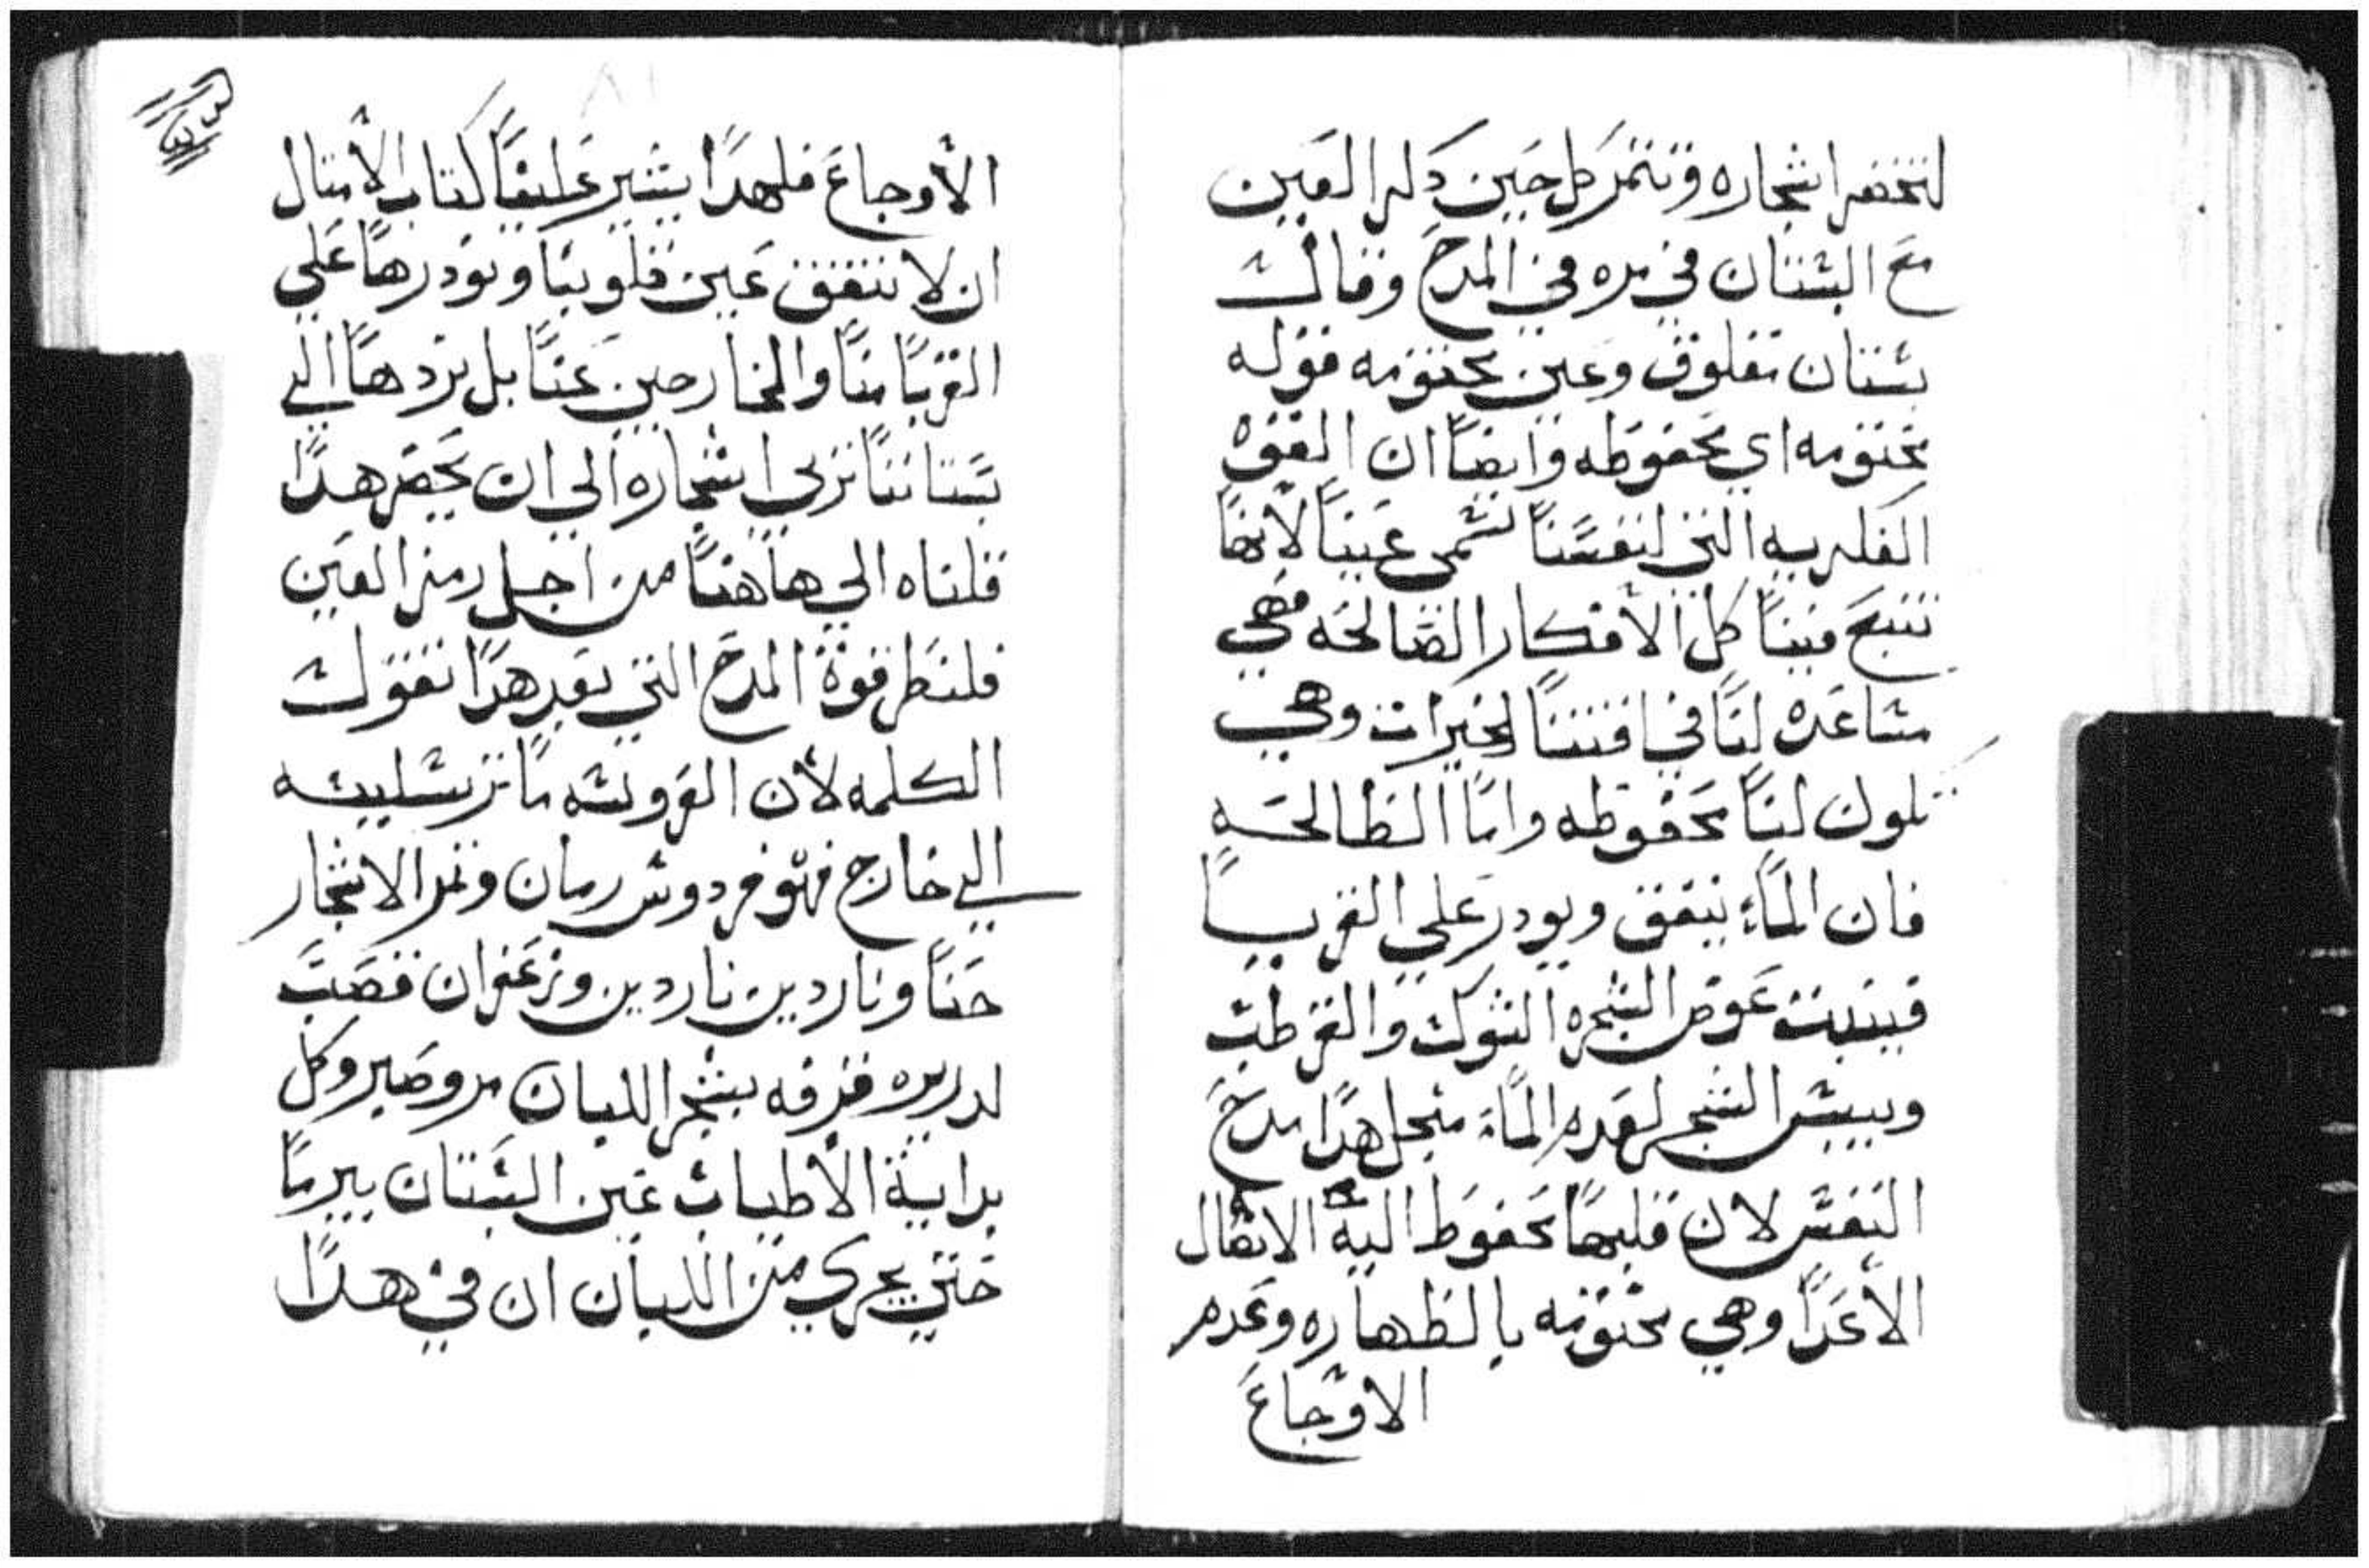 لتخضر اشجاره وتتمر كل حين دكر العين
مع البستان في مره في المدح وقال
بستان مغلوق وعين مختومه قوله
مختومه اي محفوظه وايضا ان القوه
الفكريه التي لنفسنا تسمى عينا لانها
تنبع فينا كل الافكار الصالحه فهي
مساعده لنا في اقتنا الخيرات وهي
تكون لنا محفوظه واما الطالحه
فان الماء ينفق ويودر على الغربا
فينبت عوض الشجره الشوك والقرطب
وييبس الشجر لعدم الماء فيجل هدا مدح
النفس لان قلبها محفوظ اليه الانفال
الأعدا وهي مختومه بالطهاره وعدم
الاوجاع
الأوجاع فلهدا يشير علينا كتاب الأمتال
ان لا تنفق عين قلوبنا ونودرها على
الغربا منا والخارجين عنا بل نردها الي
بستاننا نربي اشجاره الي ان يحضر هدا
قلناه الي هاهنا من اجل رمز العين
فلننظر قوة المدح التي بعد هدا تقول
الكلمه لأن العروسه ما ترسليه
الي خارج فهو فردوس رمان وتمر الاشجار
حنا وناردين ناردين وزعفران قصب
لدريره قرفه بشجر اللبان مر وصبر وكل
بداية الأطياب عين البستان بيرما
حتي يجري من اللبان ان في هدا